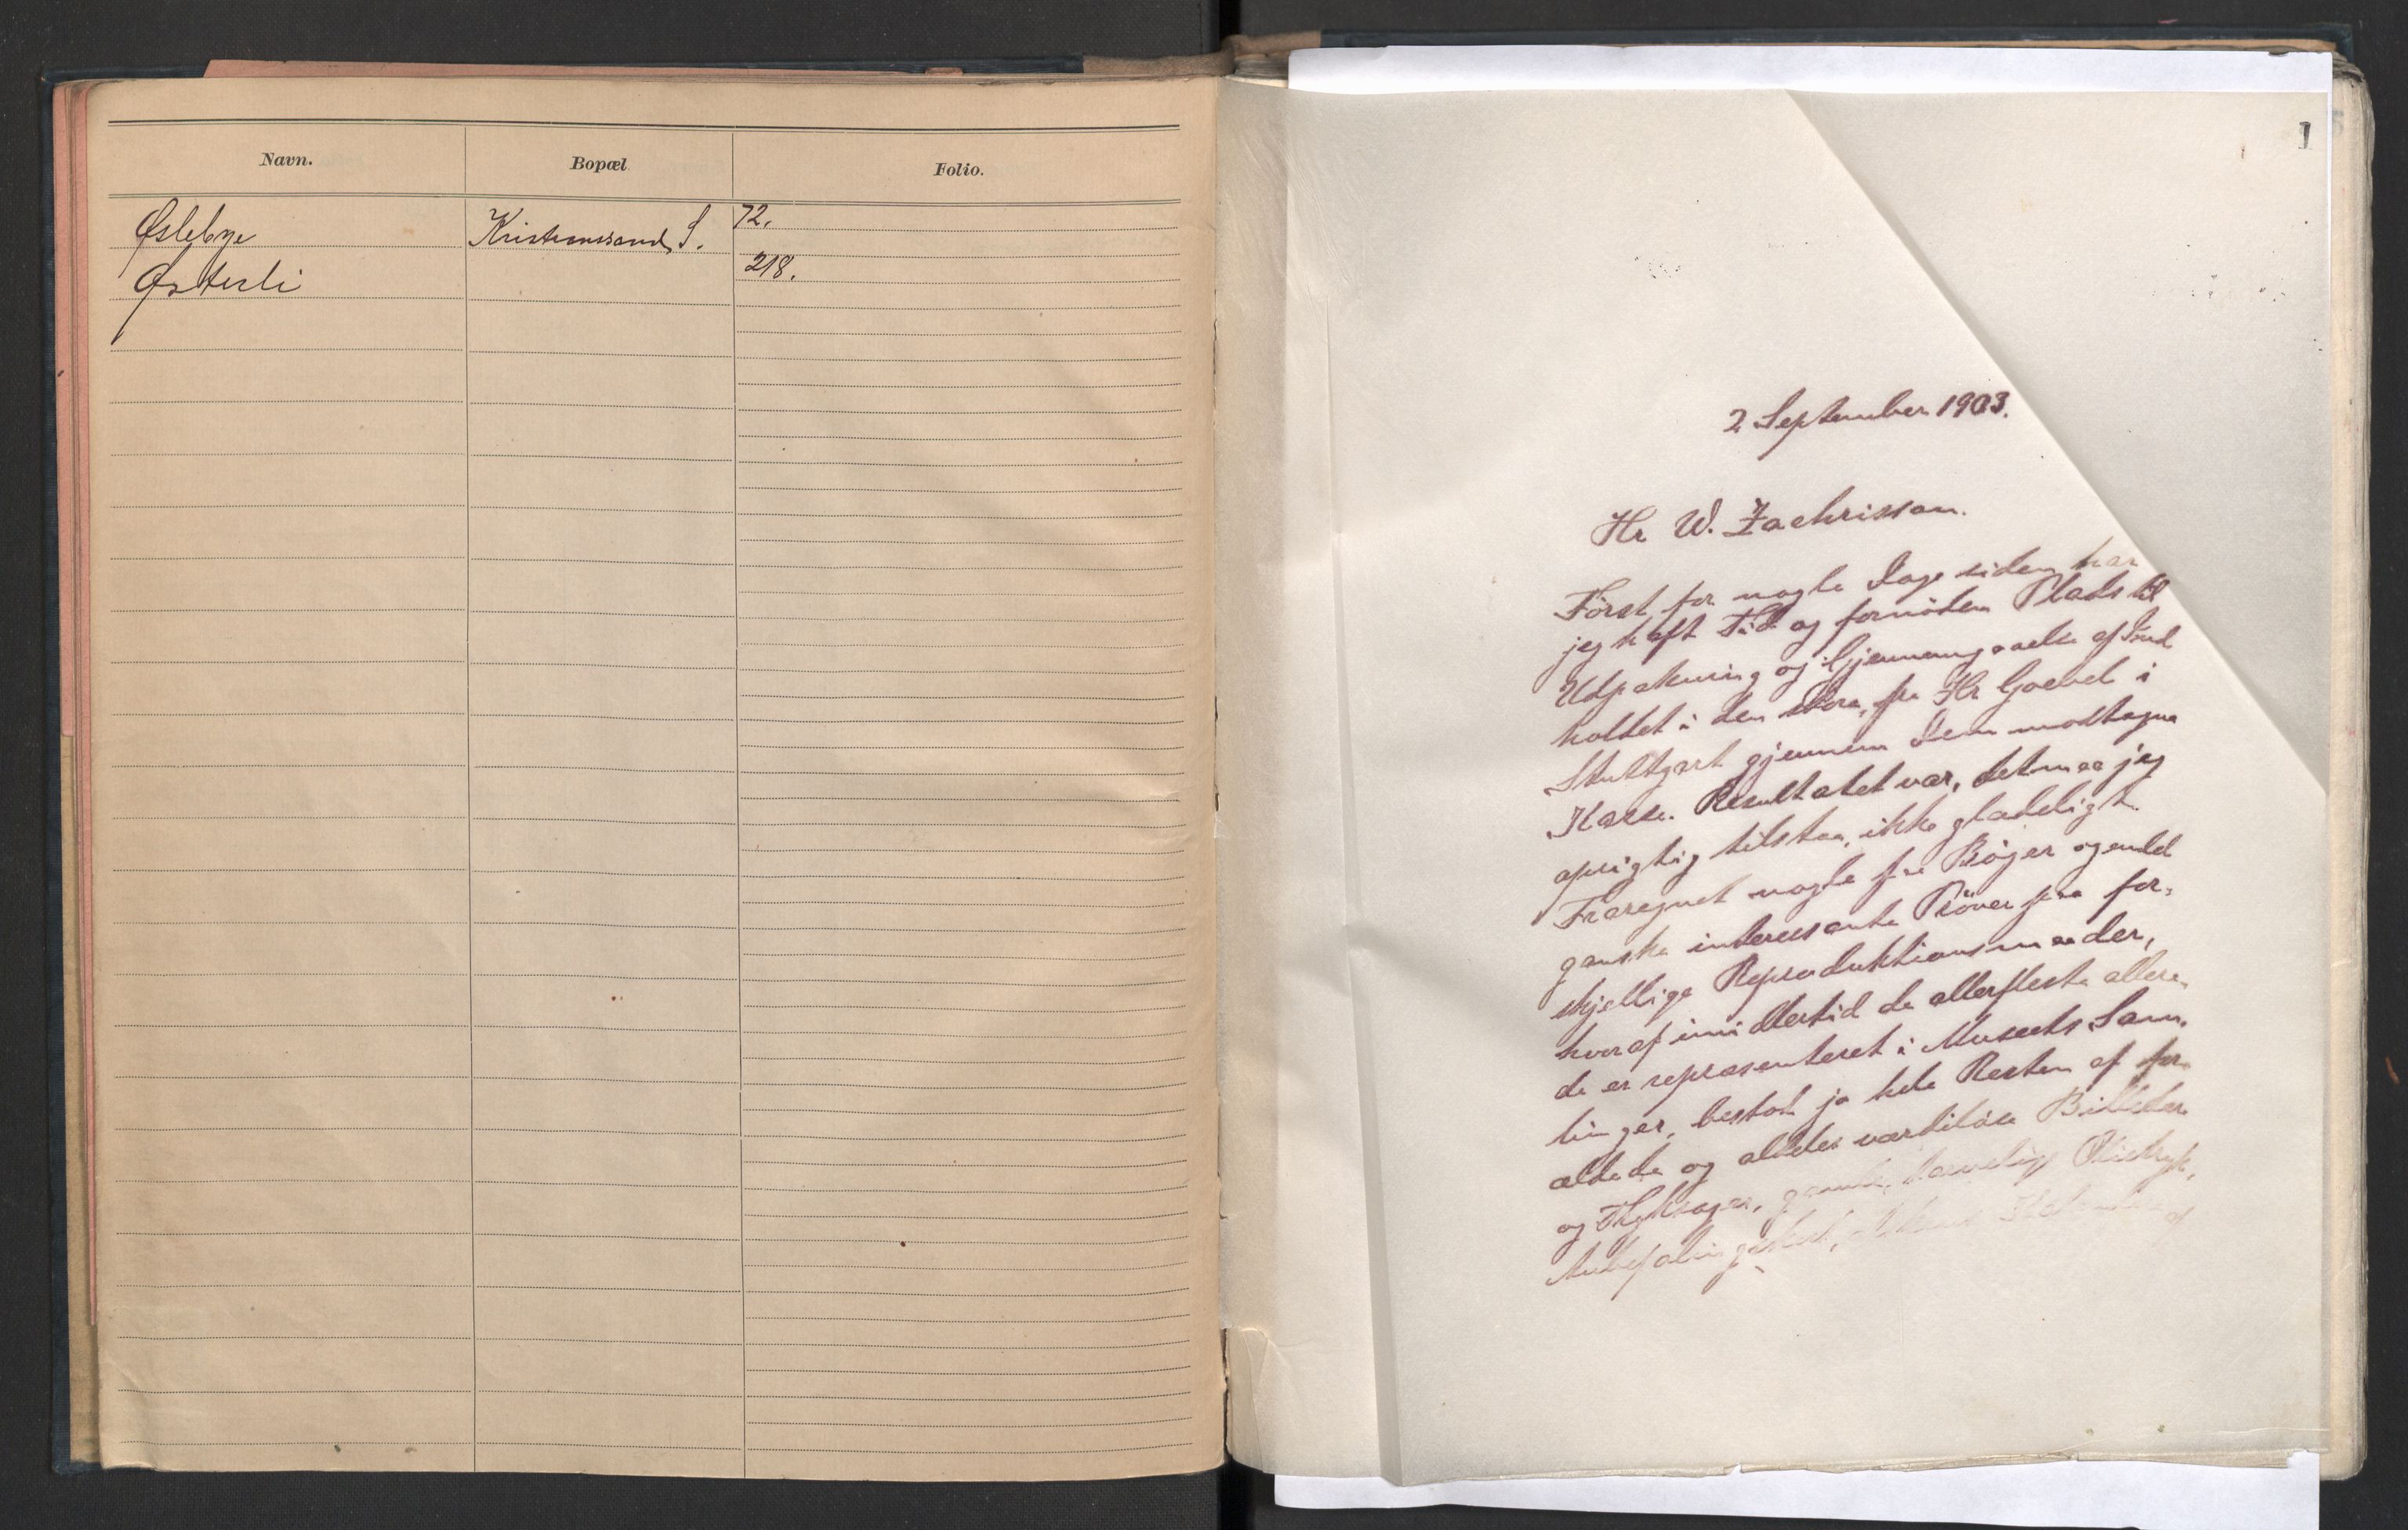 Navn.
Bopæl
Folio.
Østebye
Kristianssand S.
72.
Østerli
218.
1
2 September 1903.
Hr W. Zachrisson.
Först for nogle Dage siden har
jeg haft Tid og fornöden Plads til
Udpakning og Gjennemgaaelse af Ind
holdet i den store, fra Hr Goebel i
Stuttgart gjennem Dem modtagne
Kasse. Resultatet var, det maa jeg
oprigtig tilstaa, ikke glædeligt.
Fraregnet nogle faa Böger og endel
ganske interessante Pröver paa for-
skjellige Reproduktionsmaader,
hvoraf imidlertid de allerfleste allere-
de er repræsenteret i Museets Sam-
linger, bestod jo hele Resten af for-
ældede og aldeles værdilöse Billeder
og Tryksager, gamle, daarlige Olietryk,
Anbefalingskort, af